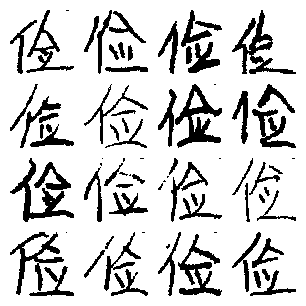 俭俭俭俭
俭俭俭俭
俭俭俭俭
俭俭俭俭